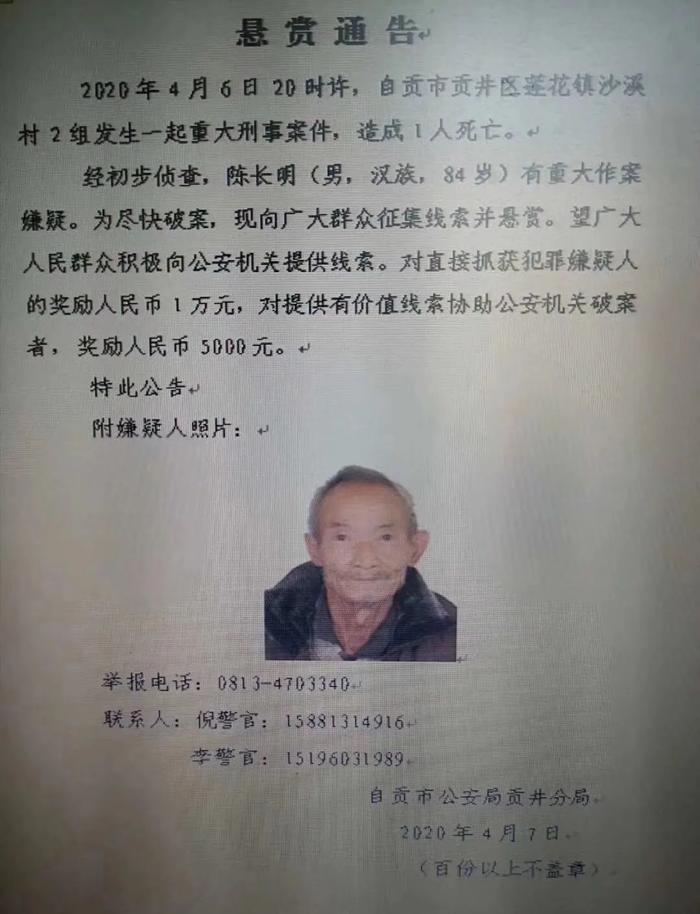 悬赏通告
2020 年 4 月 6 日 20 时许，自贡市贡井区莲花镇沙溪
村 2 组发生一起重大刑事案件，造成 1 人死亡。
经初步侦查，陈长明（男，汉族，84 岁）有重大作案
嫌疑。为尽快破案，现向广大群众征集线索并悬赏。望广大
人民群众积极向公安机关提供线索。对直接抓获犯罪嫌疑人
的奖励人民币 1 万元，对提供有价值线索协助公安机关破案
者，奖励人民币 5000 元。
特此公告
附嫌疑人照片：
举报电话：0813-4703340
联系人：倪警官：15881314916
李警官：15196031989
自贡市公安局贡井分局
2020 年 4 月 7 日
（百份以上不盖章）